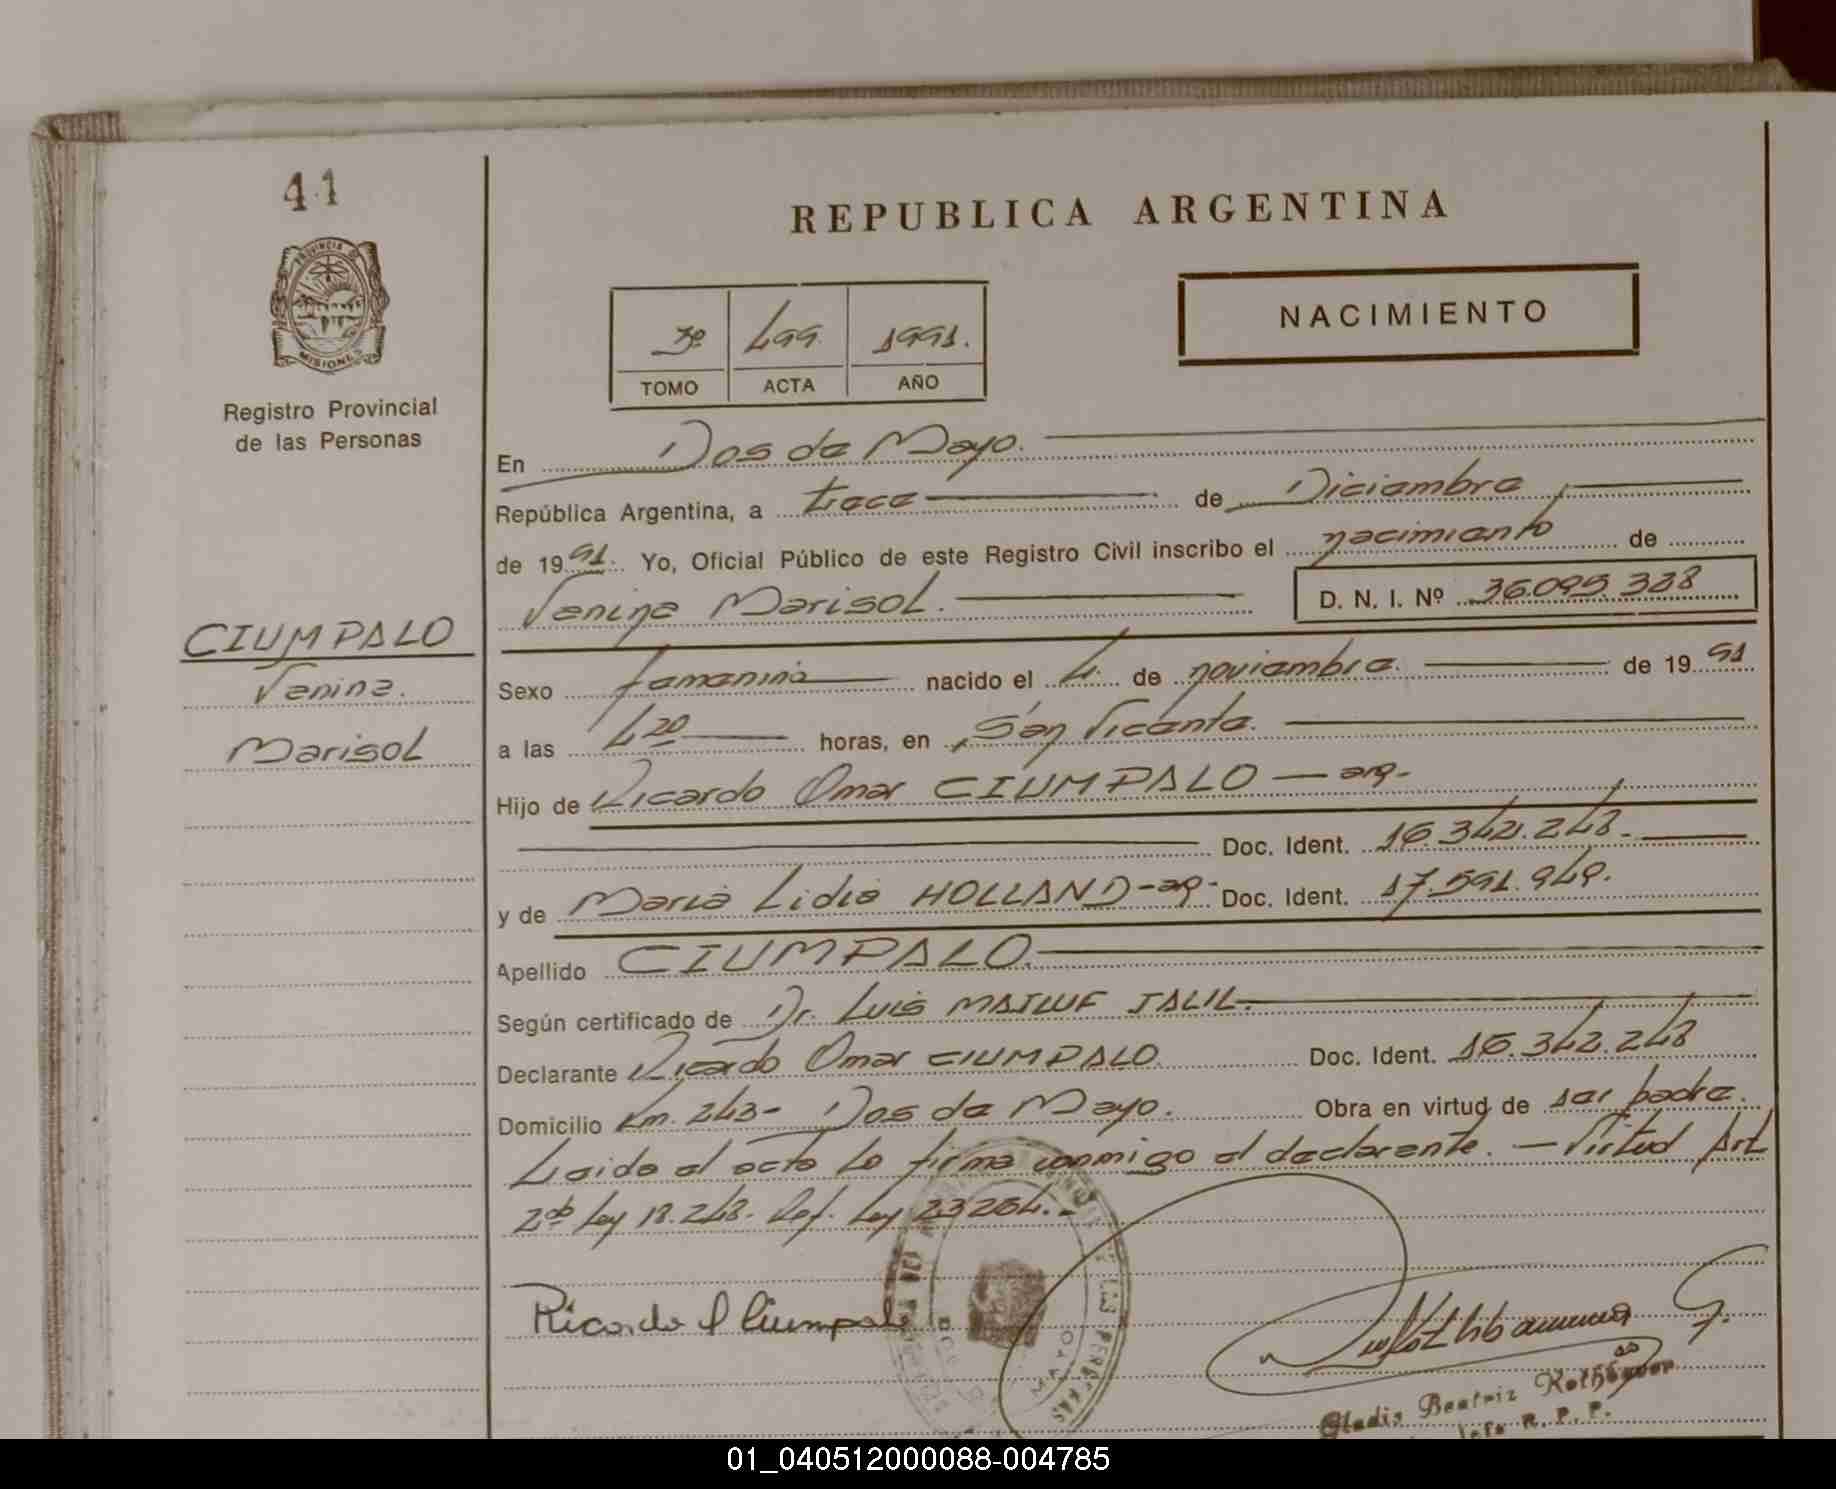 41
PROVINCIA DE
MISIONES
Registro Provincial
de las Personas
CIUMPALO
Yanina.
Marisol
REPUBLICA ARGENTINA
NACIMIENTO
3º 499. 1991.
TOMO ACTA AÑO
En Dos de Mayo.
República Argentina, a trece de Diciembre
de 1991. Yo, Oficial Público de este Registro Civil inscribo el nacimiento de
Yanina Marisol. D. N. I. Nº 36.095.328
Sexo femenino nacido el 4. de noviembre. de 1991
a las 4 20 horas, en San Vicente.
Hijo de Ricardo Omar CIUMPALO — arg-
Doc. Ident. 16.342.248.
y de Maria Lidia HOLLAND - arg- Doc. Ident. 17.591.949.
Apellido CIUMPALO.
Según certificado de Dr. Luis MAJLUF JALIL.
Declarante Ricardo Omar CIUMPALO. Doc. Ident. 16.342.248
Domicilio Km. 243- Dos de Mayo. Obra en virtud de ser padre.
Leida el acta la firma conmigo el declarante. — Virtud Art
2do ley 18.248. Ref. ley 23264.-
Ricardo O Ciumpalo
MAYO
Gladis Beatriz Rothbauer
Jefe R. P. P.
01_040512000088-004785